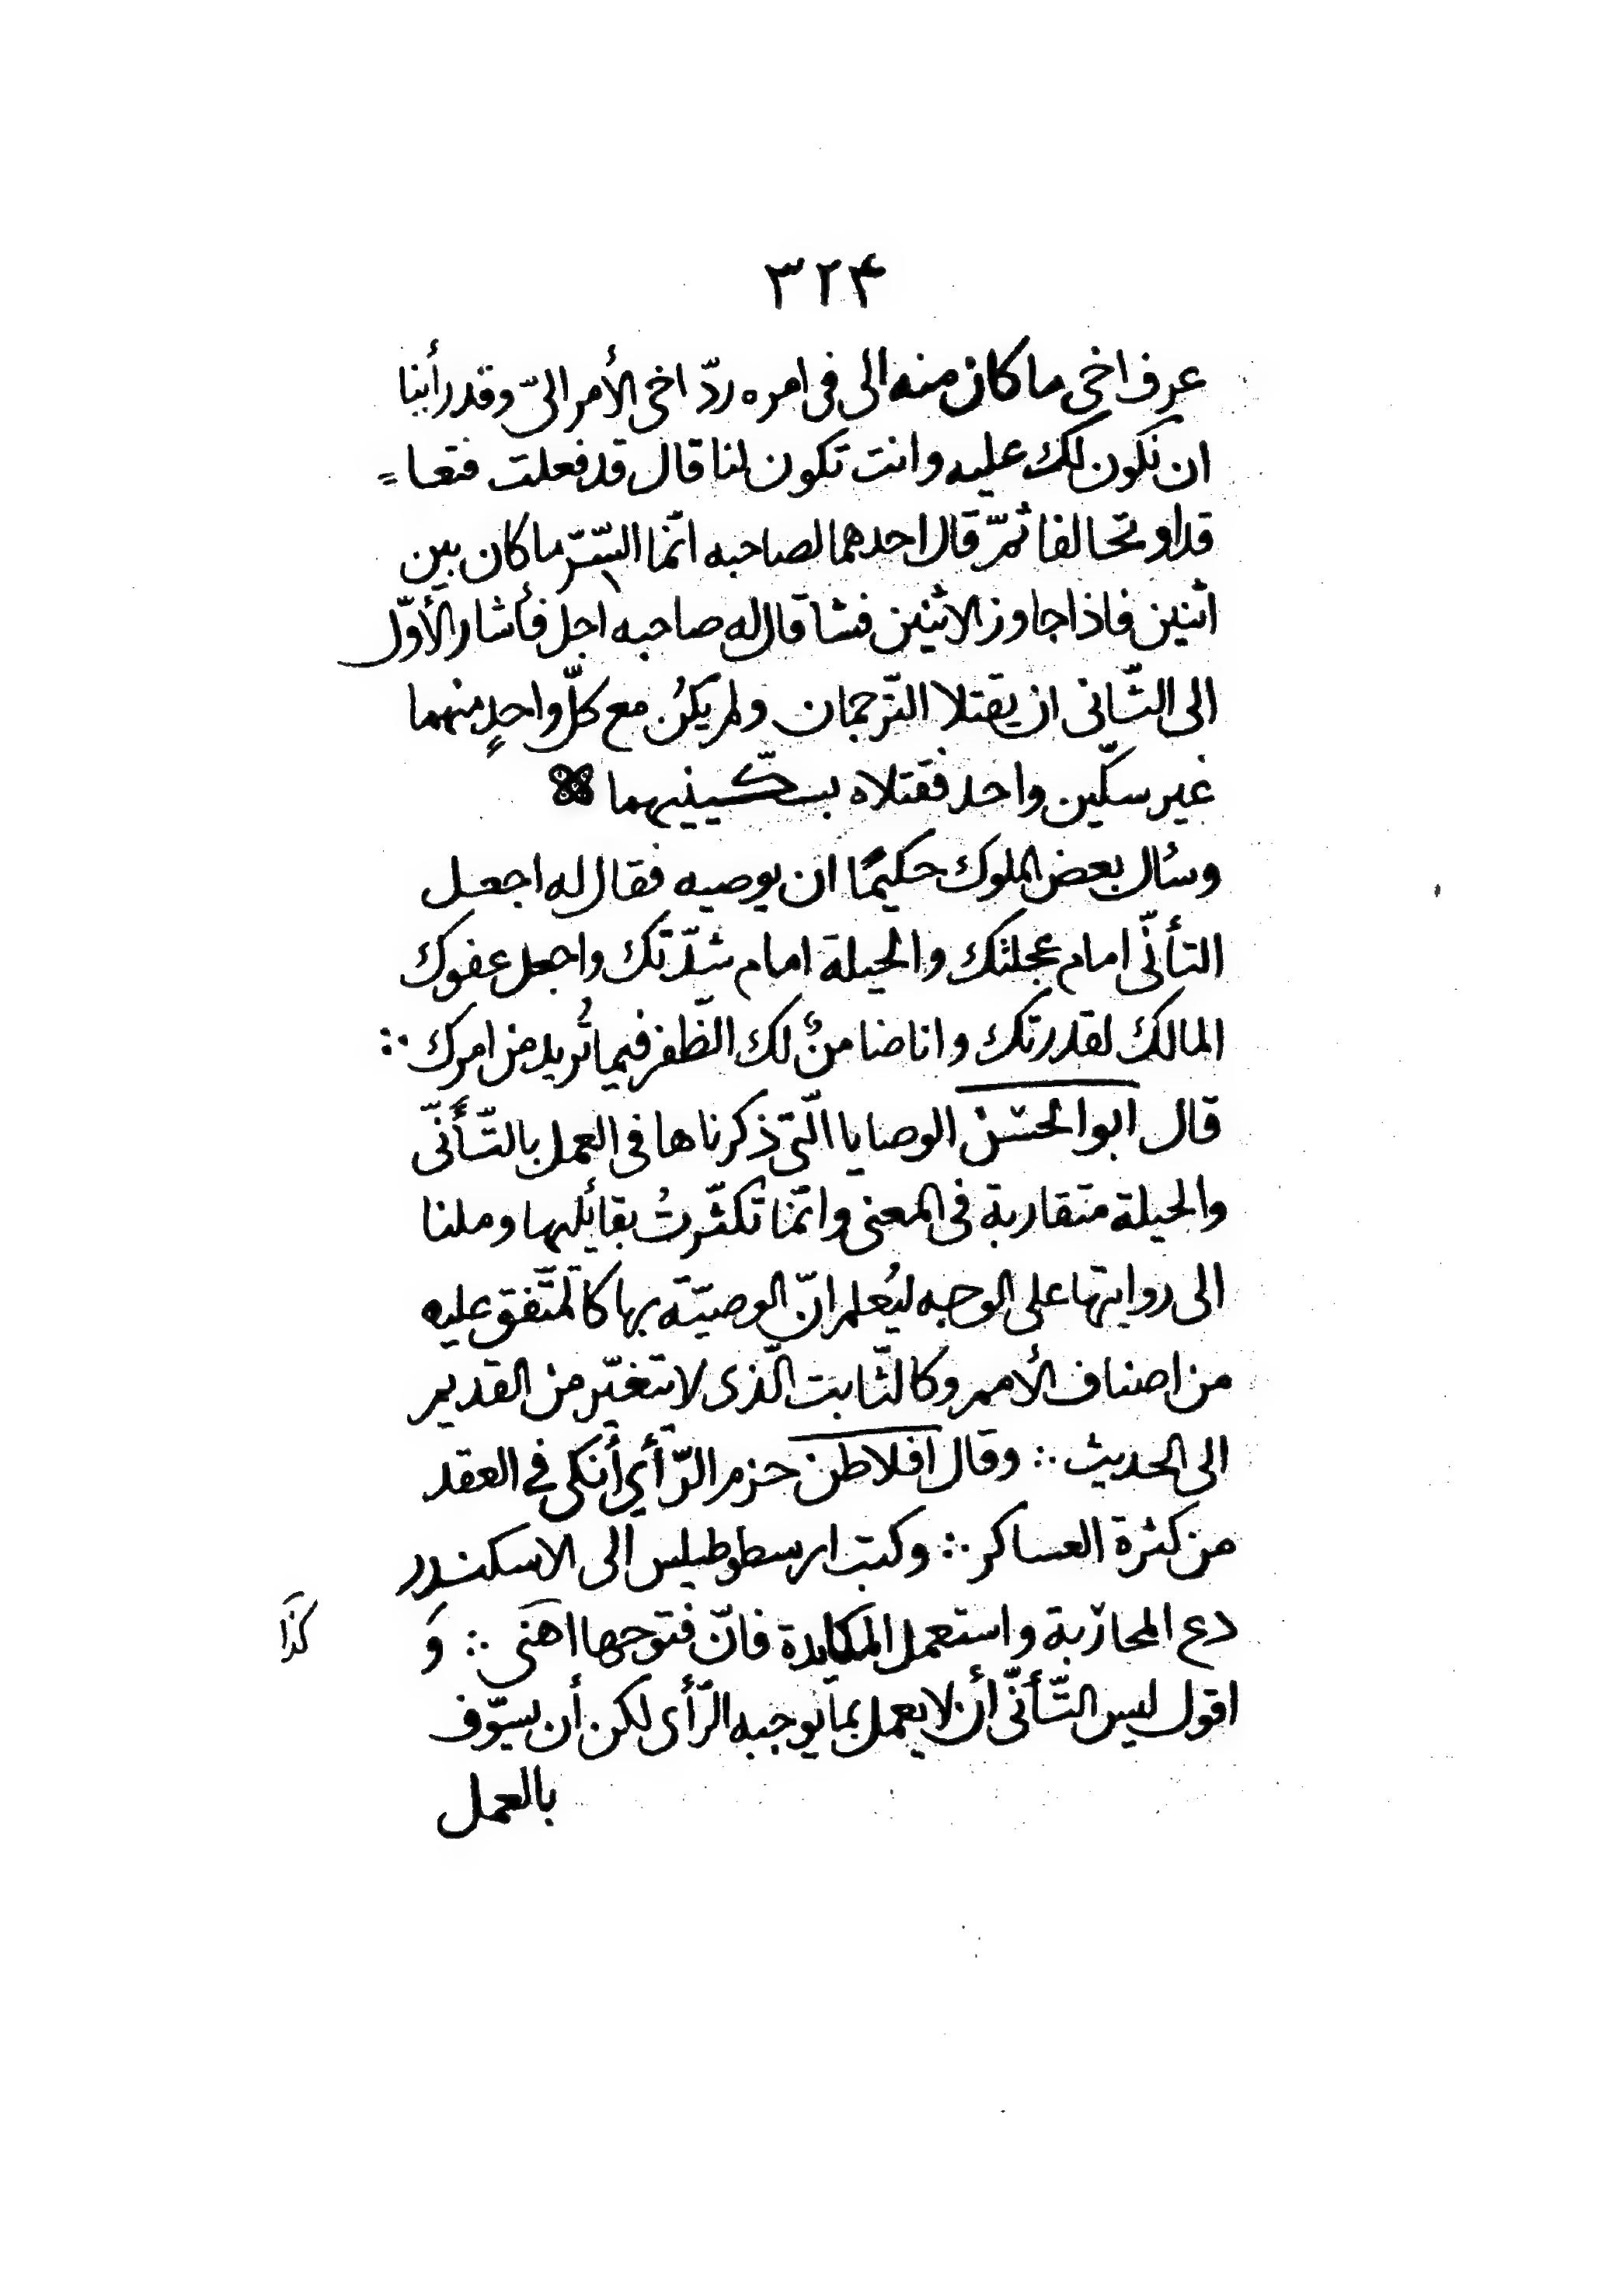 ٣٢۴
عرف اخى ما كان منه الى فى امره ردّ اخى الأمر الىّ وقد رأينا
ان نكون لك عليه وانت تكون لنا قال قد فعلت فتعا =
قداو تحالفا ثمّ قال احدهما لصاحبه انّما السّرّ ما كان بين
اثنين فاذا جاوز الاثنين فشا قال له صاحبه اجل فأشار الأوّل
الى الثّانى ان يقتلا التّرجمان ولم يكُن مع كلّ واحدٍ منهما
غير سكّين واحد فقتلاه بسكّينيهما
وسُال بعض الملوك حكيمًا ان يوصيه فقال له اجعل
التأنّى امام عجلتك والحيلة امام شدّتك واجعل عفوك
المالك لقدرتك وانا ضامنٌ لك الظّفر فيما تُريد من امرك ∴
قال ابو الحسن الوصايا الّتى ذكرناها فى العمل بالتّأنّى
والحيلة متقاربة فى المعنى وانّما تكثّرتُ بقائليها وملنا
الى روايتها على الوجه ليُعلم انّ الوصيّة بها كالمتّفق عليه
من اصناف الأمم وكالثّابت الّذى لا تتغيّر من القديم
الى الحديث ∴ وقال افلاطن حزم الرّأي أنكى في العقد
من كثرة العساكر ∴ وكتب ارسطوطيلس الى الاسكندر
دع المحاربة واستعمل المكايدة فانّ فتوحها اهنى ∴ وَ
كذا
اقول ليس التّأنّى أن لا يعمل بما يوجبه الرّأى لكن أن يسوّف
بالعمل